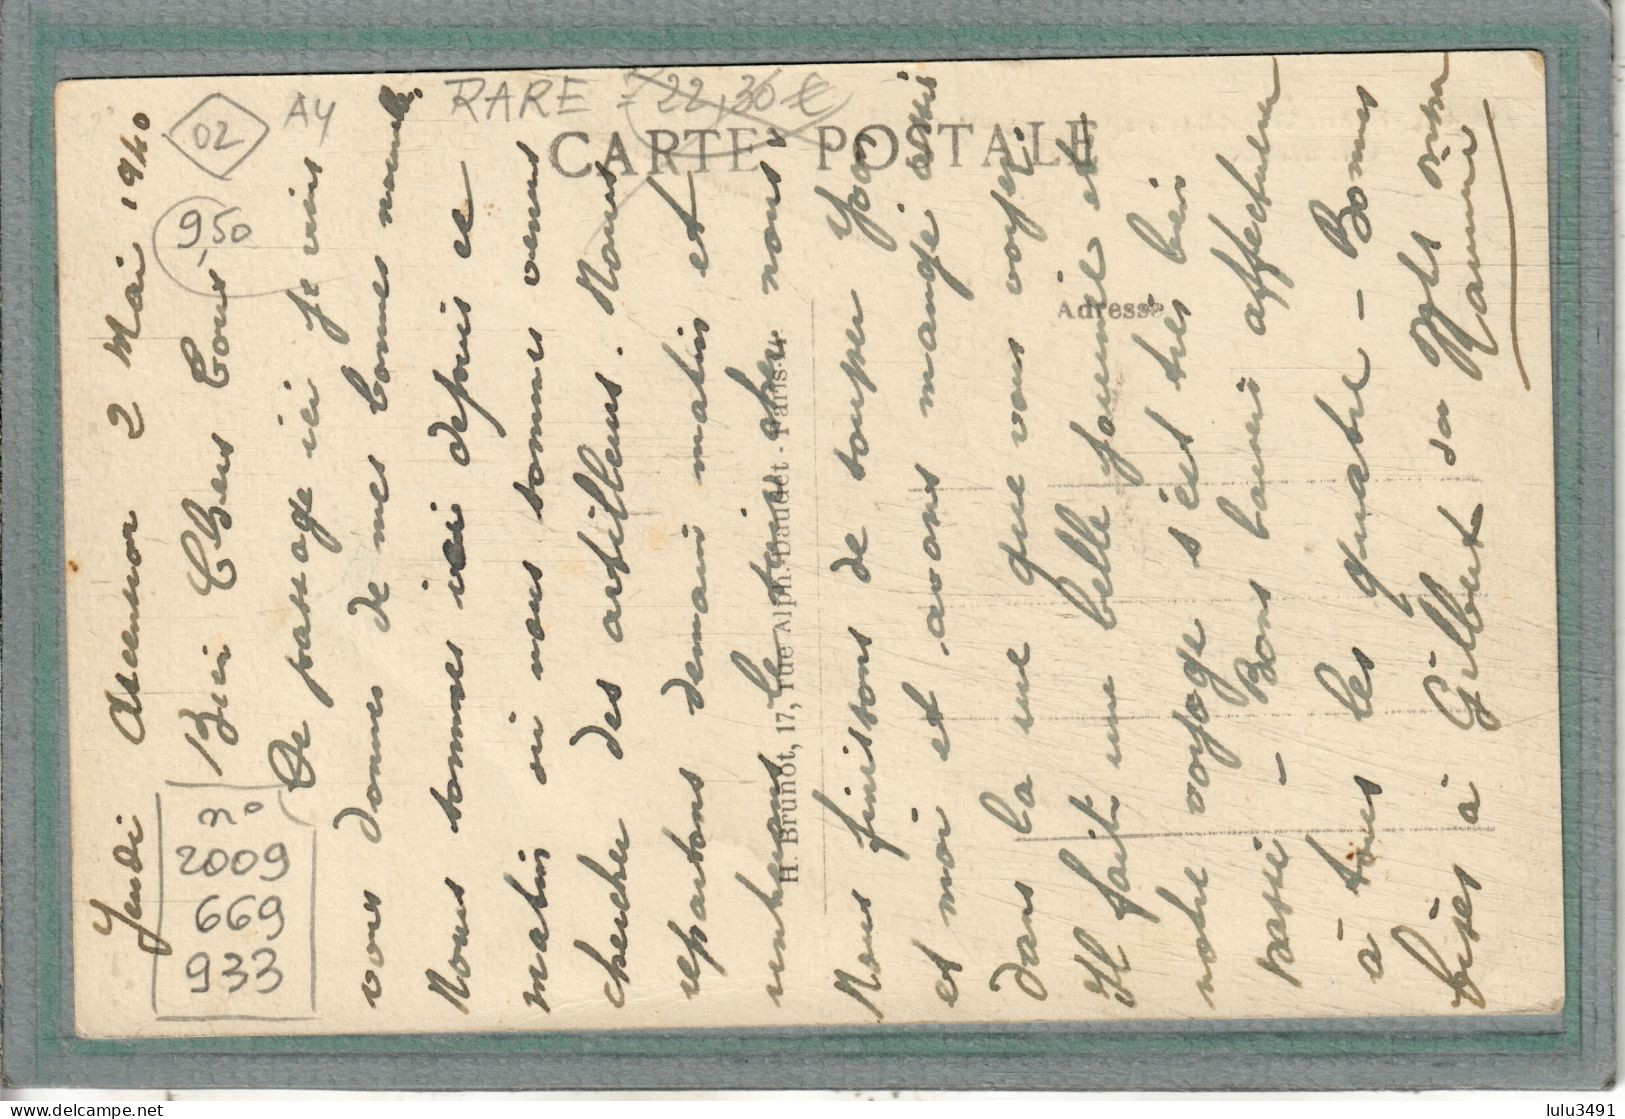 RARE = 22,30 €
A4
02
9,50
CARTE POSTALE
Adresse
H. Brunot, 17, rue Alph. Daudet - Paris-14
n°
2009
669
933
Jeudi Ascension 2 Mai 1940
Bien Chers Tous
De passage ici je viens
vous donner de mes bonnes nouvelles.
Nous sommes ici depuis ce
matin où nous sommes venus
chercher des artilleurs. Nous
repartons demain matin et
rentrerons le train chez nous
Nous finissons de souper
et moi et avons mangé assis
dans la rue que vous voyez
Il fait une belle journée et
notre voyage s'est très bien
passé - Bons baisers affectueux
à tous les quatre - Bonnes
bises à Gilbert
lulu3491
www.delcampe.net